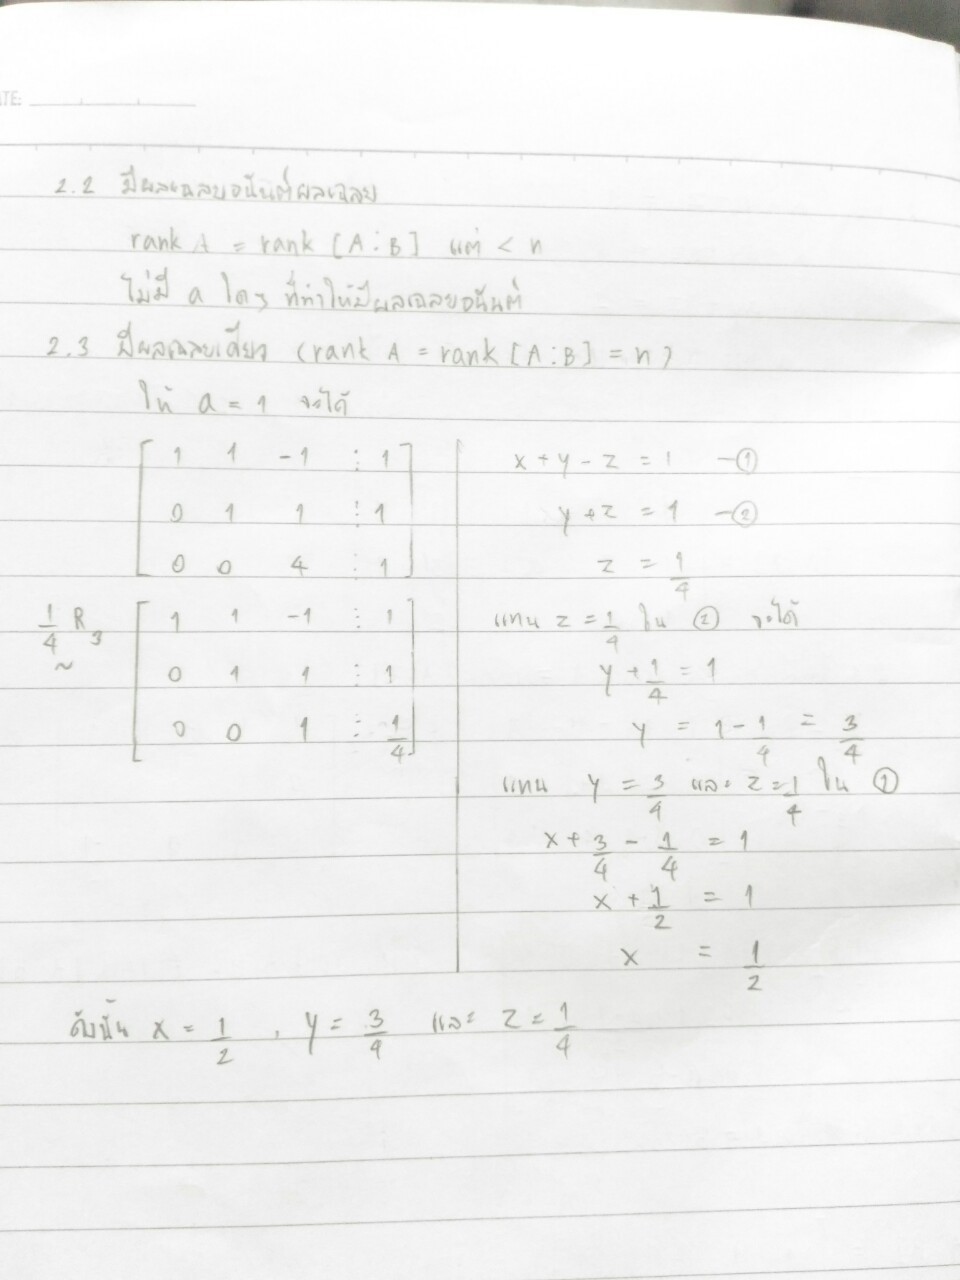 ATE:
2.2 มีผลเฉลยอนันต์ผลเฉลย
rank A = rank [A⋮B] แต่ < n
ไม่มี a ใดๆ ที่ทำให้มีผลเฉลยอนันต์
2.3 มีผลเฉลยเดียว (rank A = rank [A⋮B] = n)
ให้ a = 1 จะได้
[1 1 -1 ⋮ 1
0 1 1 ⋮ 1
0 0 4 ⋮ 1]
1/4 R3 ~
[1 1 -1 ⋮ 1
0 1 1 ⋮ 1
0 0 1 ⋮ 1/4]
x + y - z = 1 —①
y + z = 1 —②
z = 1/4
แทน z = 1/4 ใน ② จะได้
y + 1/4 = 1
y = 1 - 1/4 = 3/4
แทน y = 3/4 และ z = 1/4 ใน ①
x + 3/4 - 1/4 = 1
x + 1/2 = 1
x = 1/2
ดังนั้น x = 1/2 , y = 3/4 และ z = 1/4